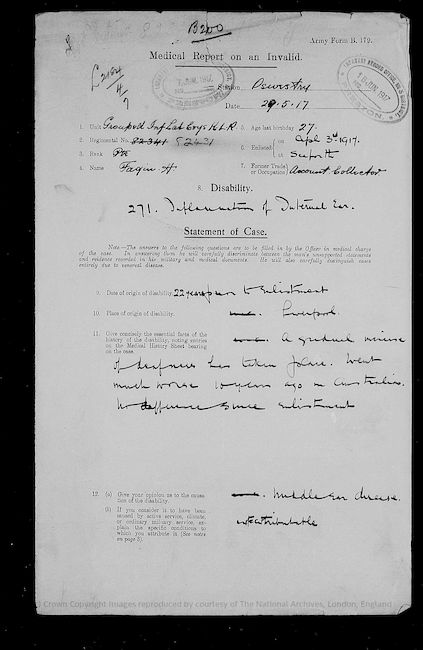 B200
Army Form B. 179.
Medical Report on an Invalid.
Station Oswestry
Date 29.5.17
1. Unit Grouped Inf Lab Coys K L R
2. Regimental No. 82341 52431
3. Rank Pte
4. Name Fagin H
5. Age last birthday 27.
6. Enlisted { on Apl 3rd 1917.
at Seaforth
7. Former Trade or Occupation } Account Collector
8. Disability.
271. Inflammation of Internal Ear.
Statement of Case.
Note.—The answers to the following questions are to be filled in by the Officer in medical charge
of the case. In answering them he will carefully discriminate between the man's unsupported statements
and evidence recorded in his military and medical documents. He will also carefully distinguish cases
entirely due to venereal disease.
9. Date of origin of disability. 22 years prior to Enlistment
10. Place of origin of disability. Liverpool.
11. Give concisely the essential facts of the
history of the disability, noting entries
on the Medical History Sheet bearing
on the case.
A gradual increase
of deafness has taken place. Went
much worse 10 years ago in Australia.
No difference since enlistment
12. (a) Give your opinion as to the causa-
tion of the disability.
Middle Ear disease.
(b) If you consider it to have been
caused by active service, climate,
or ordinary military service, ex-
plain the specific conditions to
which you attribute it (See notes
on page 3).
not attributable
© Crown Copyright Images reproduced by courtesy of The National Archives, London, England.